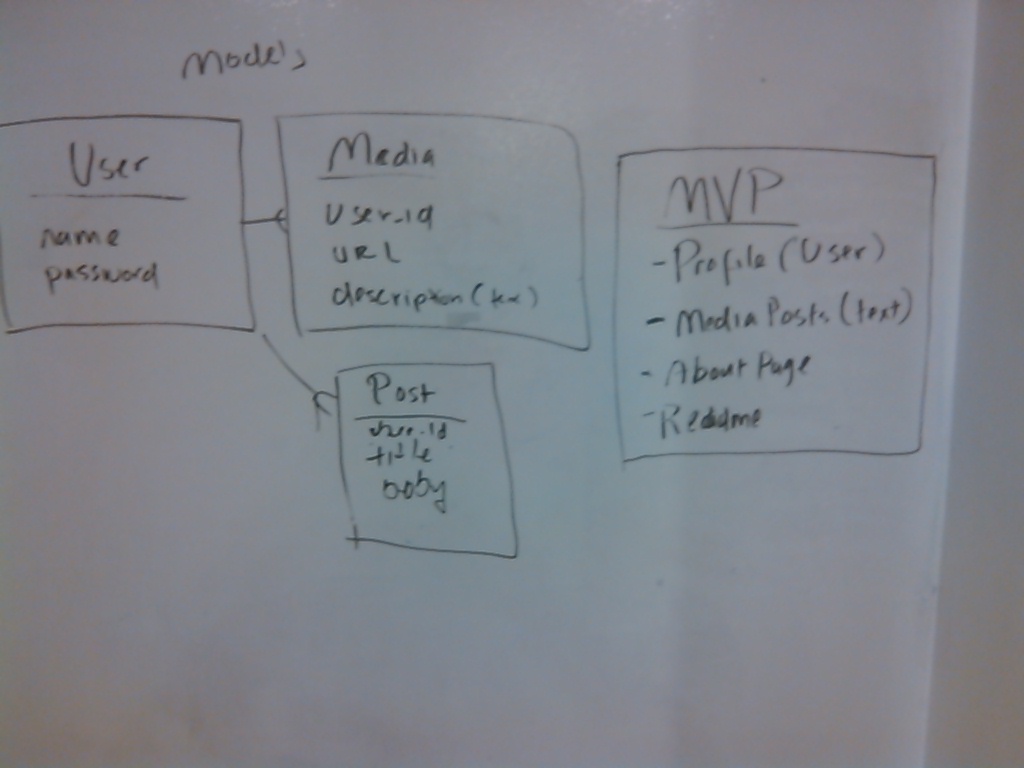 Models
User
name
password
Media
User_id
URL
description (text)
Post
user_id
title
body
MVP
- Profile (User)
- Media Posts (text)
- About Page
- Readme